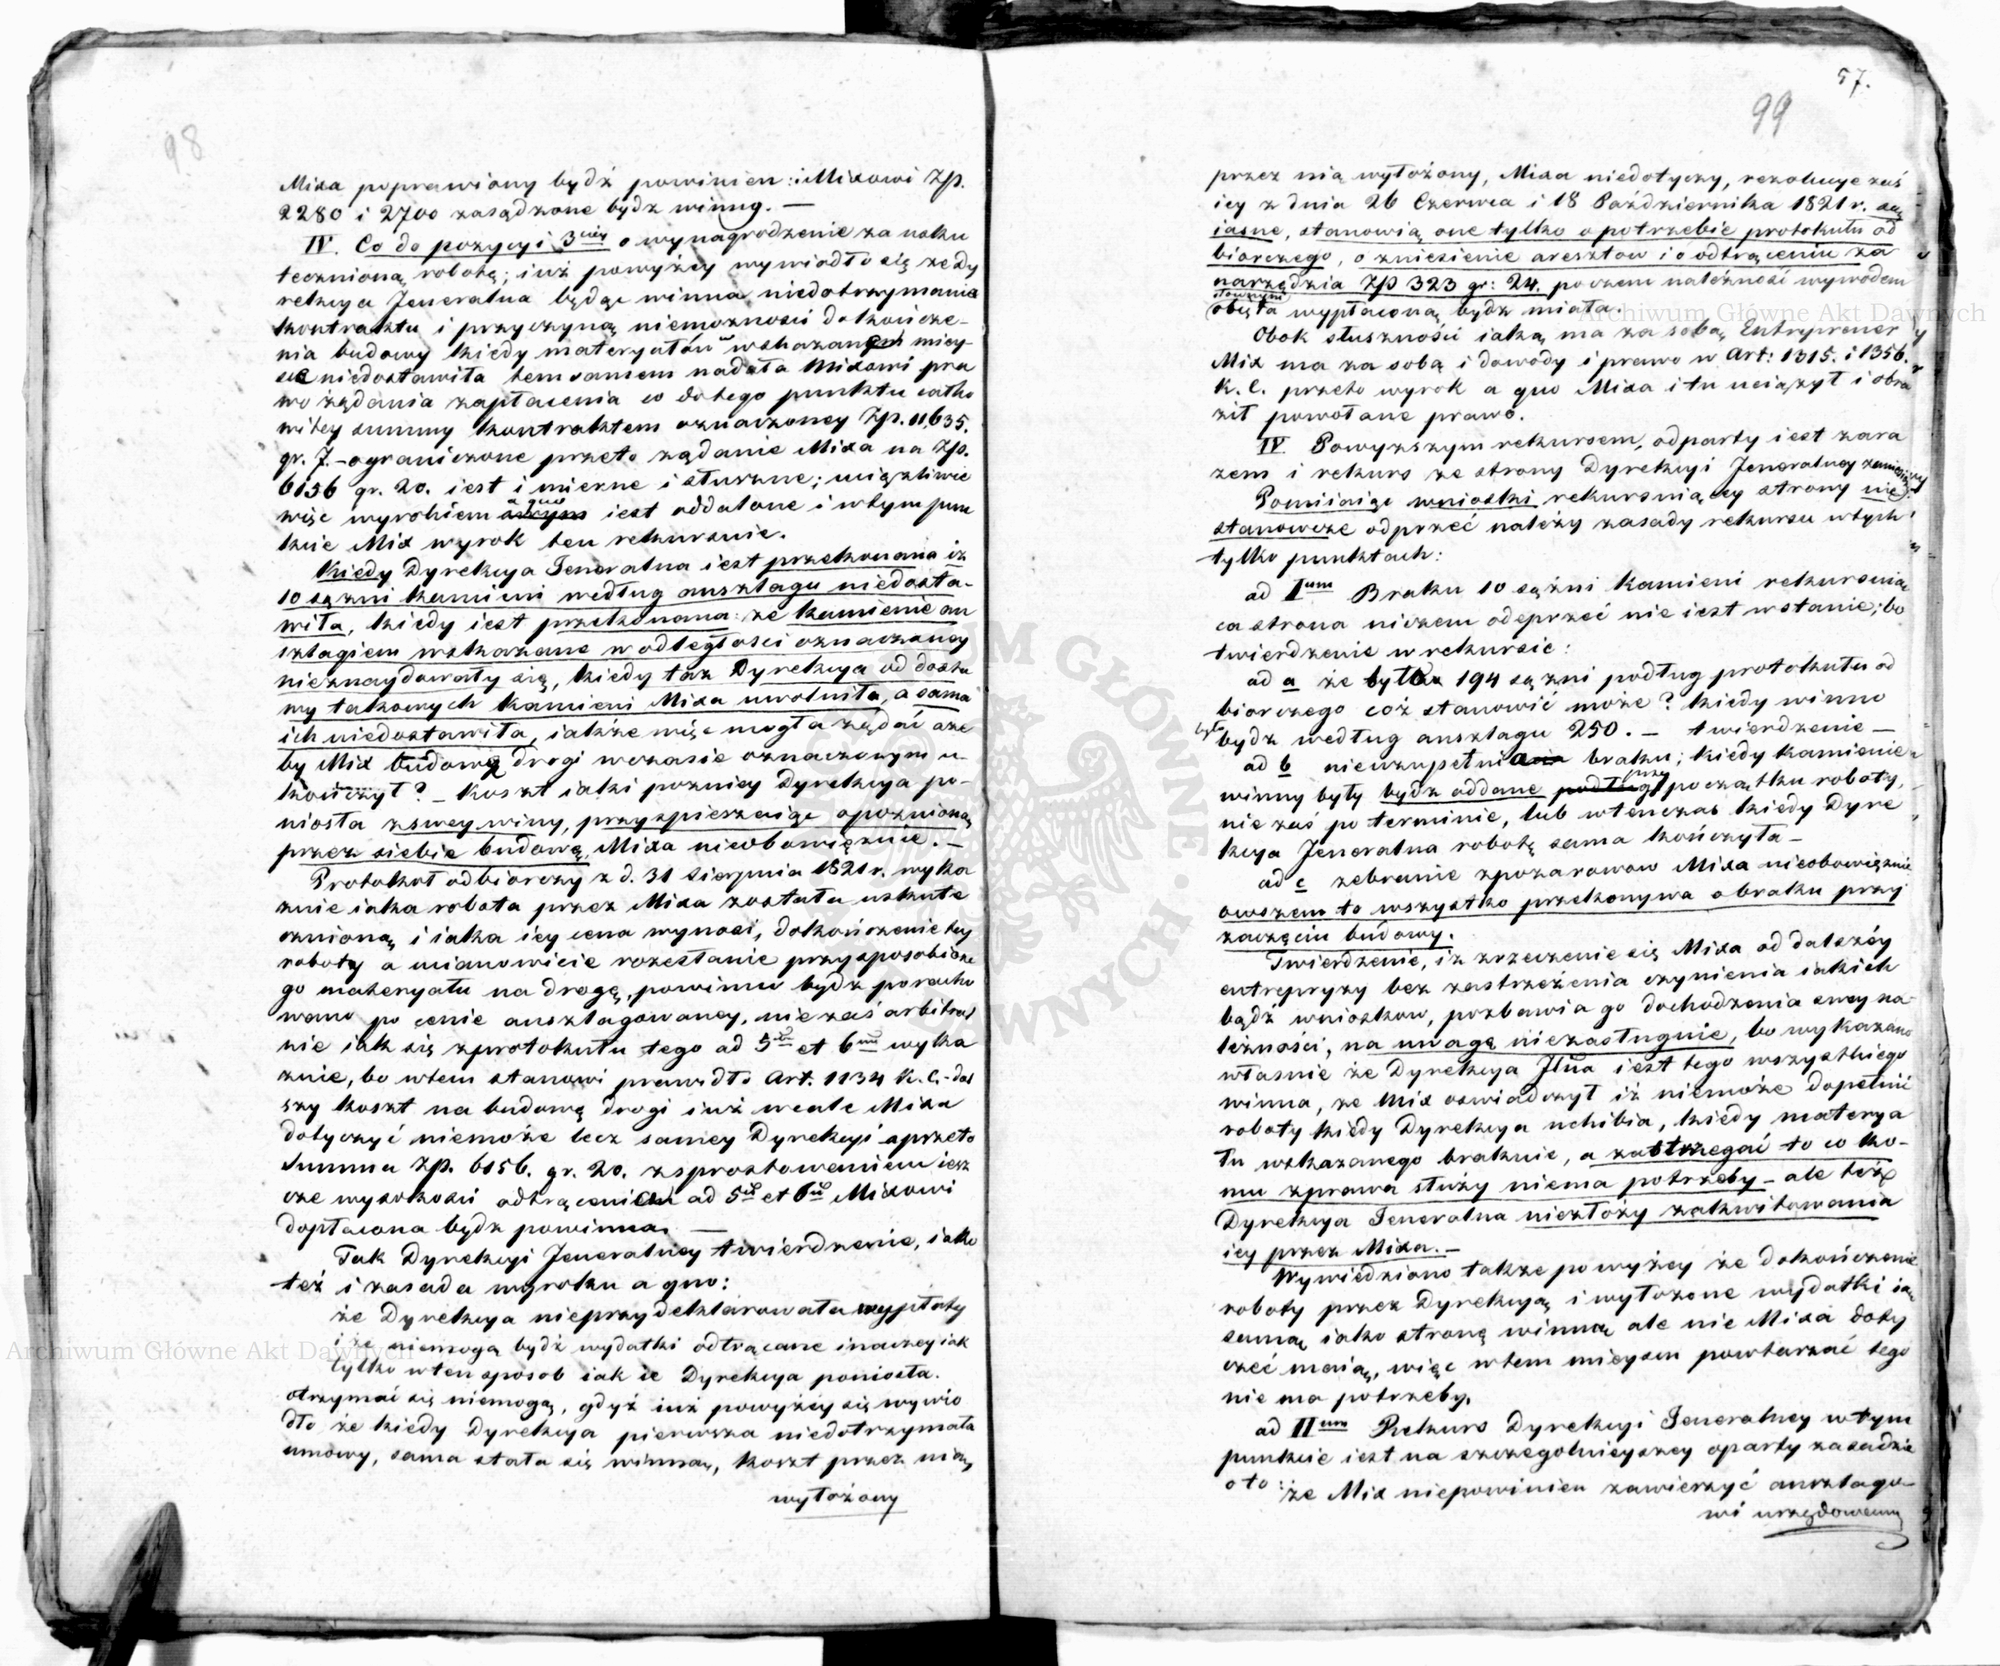 98
Mixa poprawiony bydź powinien: i Mixowi Zp.
2280 i 2700 zasądzone bydz winny. —
IV. Co do pozycyi 3ciey o wynagrodzenie za usku
tecznioną robotę; iuż powyżey wywiodło się że Dy
rekcya Jeneralna będąc winna niedotrzymania
kontraktu i przyczyną niemożności dokończe-
nia budowy kiedy materyałów w wskazanem miey-
sce niedostawiła tem samem nadała Mixowi pra
wo żądania zapłacenia co do tego punktu całko
witey summy kontraktem oznaczoney Zp. 11,635.
gr. 7. – ograniczone przeto żądanie Mixa na Zp.
6156 gr. 20. iest i mierne i słuszne; uciążliwie
więc wyrokiem a quo iest oddalone i w tym pun
kcie Mix wyrok ten rekursuie.
Kiedy Dyrekcya Jeneralna iest przekonana iż
10 sążni kamieni według anszlagu niedosta-
wiła, kiedy iest przekonana: że kamienie an
szlagiem wskazane w odległości oznaczoney
nieznaydowały się, kiedy taż Dyrekcya od dosta
wy takowych kamieni Mixa uwolniła, a sama
ich niedostawiła, iakże więc mogła żądać aże
by Mix budowę drogi w czasie oznaczonym u-
kończył? – Koszt iaki pozniey Dyrekcya po-
niosła z swey winy, przyspieszaiąc opoznioną
przez siebie budowę, Mixa nieobowiązuie. –
Protokół odbiorczy z d. 31 Sierpnia 1821 r. wyka
zuie iaka robota przez Mixa została uskute
cznioną i iaka iey cena wynosi, dokończenie tey
roboty a mianowicie rozesłanie przysposobione
go materyału na drogę, powinno bydź poracho
wano po cenie anszlagowaney, nie zaś arbitral
nie iak się z protokułu tego ad 5to et 6to wyka
zuie, bo w tem stanowi prawidło Art. 1134 K. C. – dal
szy koszt na budowę drogi iuż wcale Mixa
dotyczyć niemoże lecz samey Dyrekcyi a przeto
Summa zp. 6156. gr. 20. z sprostowaniem iesz
cze wysokosci odtrąceni ad 5to et 6to Mixowi
dopłacona bydz powinna. —
Tak Dyrekcyi Jeneralney twierdzenie, iako
też i zasada wyroku a quo:
że Dyrekcya nieprzydeklarowała wypłaty
i że niemogą bydź wydatki odtrącane inaczey iak
tylko w ten sposob iak ie Dyrekcya poniosła.
otrzymać się niemogą, gdyż iuż powyżey się wywio
dło że kiedy Dyrekcya pierwsza niedotrzymała
umowy, sama stała się winną, koszt przez nią
wyłożony
57.
99
przez nią wyłożony, Mixa niedotyczy, rezolucye zaś
iey z dnia 26 Czerwca i 18 Października 1821 r. są
iasne, stanowią one tylko o potrzebie protokułu od
biorczego, o zniesienie aresztow i o odtrąceniu za
narzędzia Zp 323 gr: 24. poczem należność wywodem
słownym
obięta wypłaconą bydz miała.
Obok słuszności iaką ma za sobą Entreprener
Mix ma za sobą i dowody i prawo w Art: 1315. i 1356.
K. C. przeto wyrok a quo Mixa i tu uciążył i obra
ził powołane prawo.
IV. Powyższym rekursem, odparty iest zara
zem i rekurs ze strony Dyrekcyi Jeneralney
Pomiiaiąc wnioski rekursuiącey strony nie
stanowcze odprzeć należy zasady rekursu w tych
tylko punktach:
ad Ium Braku 10 sążni kamieni rekursuią
ca strona niczem odeprzeć nie iest wstanie; bo
twierdzenie w rekursie:
ad a że było 194 sążni podług protokułu od
biorczego coż stanowić może? kiedy winno
było bydz według anszlagu 250. – twierdzenie –
ad b nieuzupełnia braku; kiedy kamienie
winny były bydz oddane przy początku roboty,
nie zaś po terminie, lub wtenczas kiedy Dyre
kcya Jeneralna robotę sama kończyła –
ad c zebranie z pożarowow Mixa nieobowiązuie
owszem to wszystko przekonywa o braku przy
zaczęciu budowy.
Twierdzenie, iż zrzeczenie się Mixa od dalszéy
entrepryzy bez zastrzeżenia czynienia iakich
bądź wniosków, pozbawia go dochodzenia swey na-
leżności, na uwagę niezasługuie, bo wykazano
własnie że Dyrekcya Jlna iest tego wszystkiego
winna, że Mix oswiadczył iż niemoże dopełnić
roboty kiedy Dyrekcya uchibia, kiedy materya
łu wskazanego brakuie, a zastrzegać to co ko-
mu z prawa służy niema potrzeby – ale też
Dyrekcya Jeneralna niezłoży zakwitowania
iey przez Mixa. –
Wywiedziono także powyżey że dokończenie
roboty przez Dyrekcyą i wyłożone wydatki ią
samą iako stronę winną ale nie Mixa doty
czeć maią, więc w tem mieyscu powtarzać tego
nie ma potrzeby.
ad IIum Rekurs Dyrekcyi Jeneralney w tym
punkcie iest na szczegolnieyszey oparty zasadzie
oto: że Mix niepowinien zawierzyć anszlago-
wi urzędowemu
Archiwum Główne Akt Dawnych
Archiwum Główne Akt Dawnych